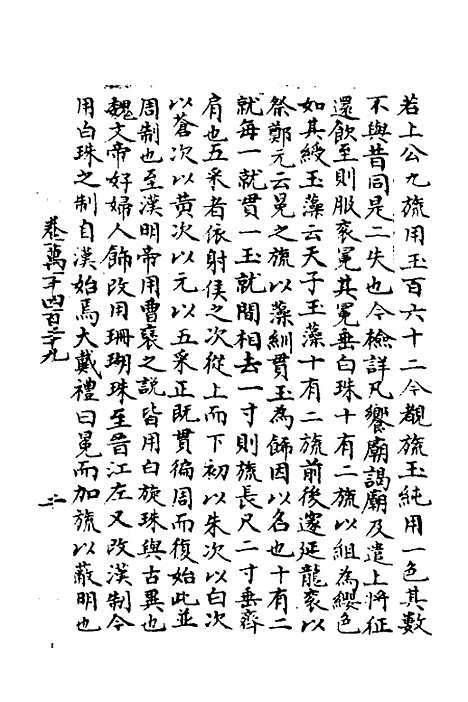 若上公九旒用玉百六十二今觀旒玉純用一色其數
不與昔同是二失也今檢詳凡饗廟謁廟及遣上將征
還飲至則服袞冕其冕垂白珠十有二旒以組為纓色
如其綬玉藻云天子玉藻十有二旒前後邃延龍袞以
祭鄭元云冕之旒以藻紃貫玉為飾因以名也十有二
就每一就貫一玉就間相去一寸則旒長尺二寸垂齊
肩也五采者依射侯之次從上而下初以朱次以白次
以蒼次以黃次以元以五采正既貫徧周而復始此並
周制也至漢明帝用曹襃之說皆用白旋珠與古異也
魏文帝好婦人飾改用珊瑚珠至晉江左又改漢制今
用白珠之制自漢始焉大戴禮曰冕而加旒以蔽明也
卷一萬一千四百二十九